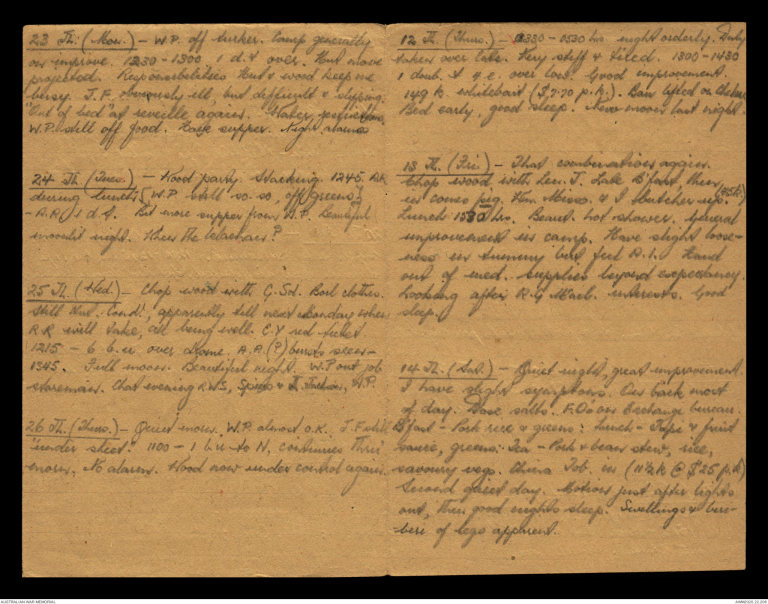 23 Th. (Mon.) - W.P. off tucker. Camp generally
on improve. 1230 - 1300. 1 d.t over. Hut move
projected. Responsibilities Hut & wood keep me
busy. J.F. obviously ill, but difficult &
"Out of bed" at reveille again. Water,
W.P. still off food. Have supper. Night alarms
24 Th. (Tues.) - Wood party. Stacking. 1245. A.R.
during lunch [W.P. still so-so, off greens]
- A.R. 1 d.t. Bit more supper from W.P. Beautiful
moonlit night. Where the
25 Th. (Wed.) - Chop wood with G. Sol. Boil clothes.
Still Hut. Cond., apparently till next Monday when
R.R will take, all being well. E.Y red ticket
1215 - 6 b.u. over Home. A.A. (?) bursts seen -
1345. Full moon. Beautiful night. W.P out job
storeman. Chat evening R.W.S, Spicer & W.P.
26 Th. (Thurs.) - Quiet morn. W.P. almost O.K. J.F still
"under street." 1100 - 1 b.u. to N, continues thru'
morn. No alarm. Wood now under control again.
12 Th. (Thurs.) - 0330 - 0530 hrs night orderly. Duty
taken over late. Very stiff & tired. 1300 - 1430
1 doub. t 4 e. over low. Good improvement.
149 k. whitebait ($7.70 p.k.). Ban lifted on
Bed early, good sleep. New moon last night.
13 Th. (Fri) - That combination again.
Chop wood with Len. T. Late B'fast, then
in comes pig. Wm. & I butcher up. (25k)
Lunch 1530 hrs. Beaut. hot shower. General
improvement in camp. Have slight loose-
ness in tummy but feel A.1. Hand
out of med. supplies beyond expectancy.
Looking after R.G Mack. interests. Good
sleep.
14 Th. (Sat.) - Quiet night, great improvement
I have slight symptoms. On back most
of day. Dose salts. F.O. on Exchange bureau.
B'fast - Pork rice & greens: Lunch - Tapi & fruit
sauce, greens: Tea - Pork & bean stew, rice,
savoury veg. China Tob. in (11½k @ $25 p.k)
Second quiet day. Motions just after lights
out, then good nights sleep. Swellings & beri-
-beri of legs apparent.
AUSTRALIAN WAR MEMORIAL